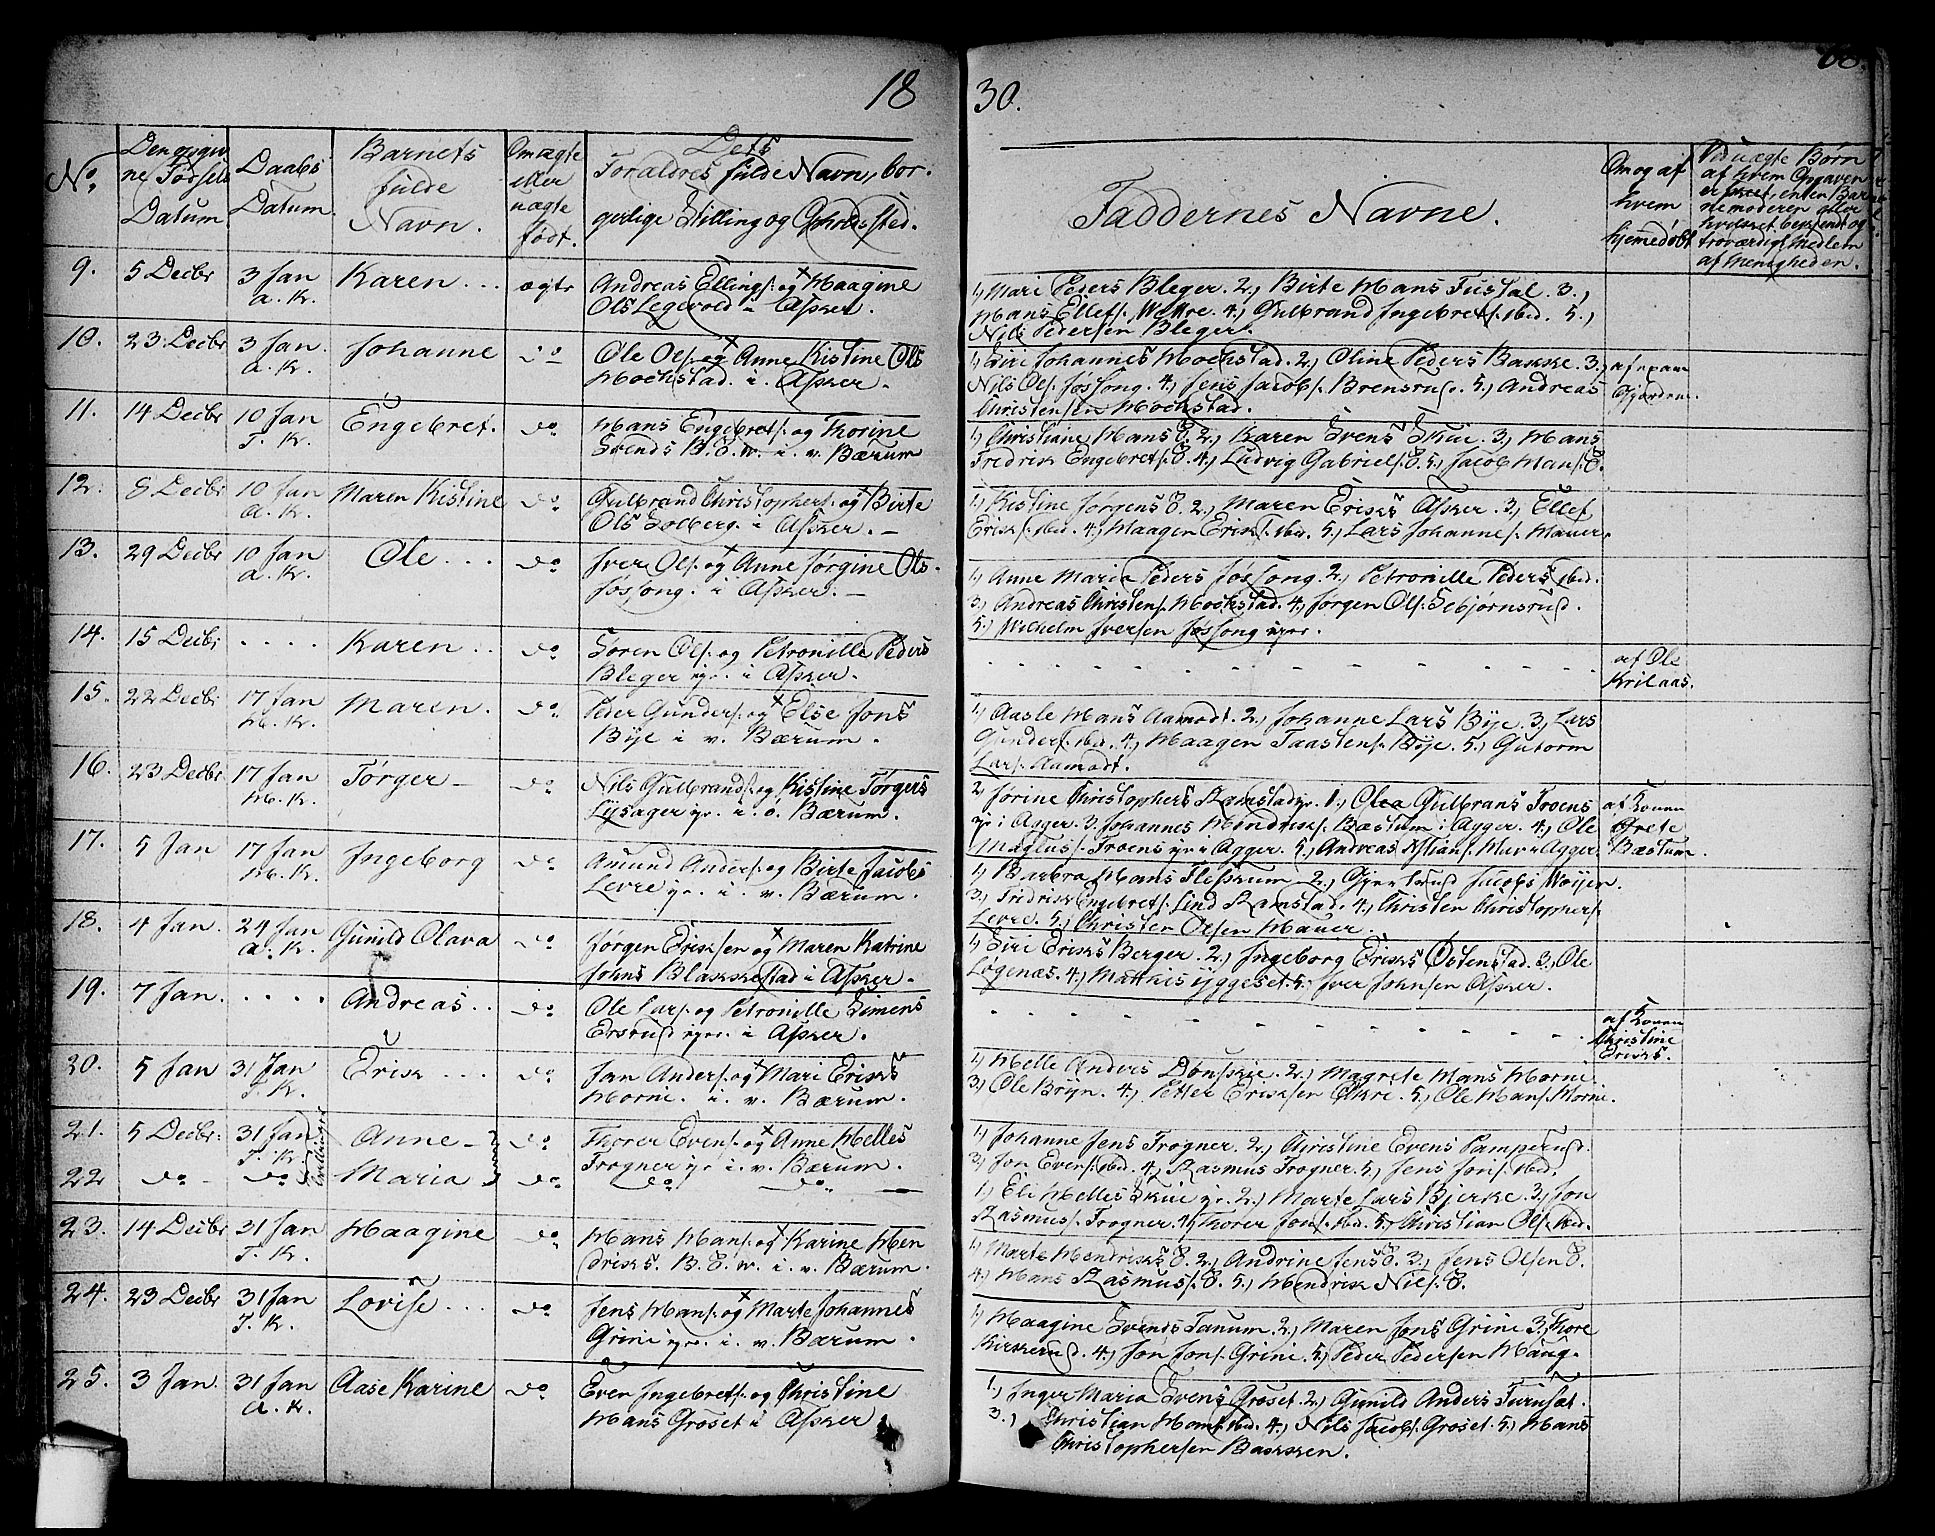 18
30.
No.
Den opgiv
ne Fødsels
Datum.
Daabs
Datum.
Barnets
fulde
Navn.
Om ægte
eller
uægte
født.
Dets
Forældres fulde Navn, bor-
gerlige Stilling og Opholdssted.
Faddernes Navne.
Om og af
hvem
hjemedøbt
Ved uægte Børn
af hvem Opgaven
er skeet, enten Bar
nemoderen eller
troværdigt Medlem
af Menigheden.
9. 5 Decbr 3 Jan Karen... ægte Andreas Ellings. og + Haagine
a. K. Ols Legevold i Asker.
1, Mari Peders Bleger. 2, Birte Hans Fusdal. 3.,
Hans Ellefs. Wøkre. 4., Gulbrand Ingebrets. ibid. 5.,
Nils Pedersen Bleger.
10. 23 Decbr 3 Jan. Johanne do Ole Ols. og + Anne Kistine Ols
a. K. Hochstad. i. Asker.
1, Siri Johannes Hochstad. 2, Oline Peders Bakke. 3.,
Nils Ols. Jøssong. 4., Jens Jacobs. Brensrud. 5., Andreas
Christensen Hochstad.
Gjorden.
11. 14 Decbr 10 Jan Engebret. do Hans Engebrets. og Thorine
T. K. Svends B. S. W. i. v. Bærum
1, Christiane Hans S. 2., Karen Svens Skui. 3., Hans
Fredrik Engebrets. S. 4., Ludvig Gabriels. S. 5., Jacob Hans. S.
12. 8 Decbr 10 Jan Maren Kistine do Gulbrand Christophers. og + Birte
a. K. Ols Solberg. i Asker. —
1, Kistine Jørgens S. 2., Maren Eriks Asker. 3, Ellef
Eriks. ibid. 4., Haagen Eriks. ibid. 5., Lars Johannes. Hauer.
13. 29 Decbr 10 Jan Ole... do Iver Ols. og + Anne Jørgine Ols.
a. K. Jøssong. i Asker. —
1, Anne Maria Peders Jøssong. 2., Petronille Peders ibid.
3., Andreas Christens. Hochstad. 4., Jørgen Ols. Sebjørnsrud.
5., Wilhelm Iversen Jøssong
14. 15 Decbr .... Karen.. do Søren Ols. og Petronille Peders
Bleger i Asker.
af Ole
Krilaas.
15. 22 Decbr 17 Jan Maren. do Peder Gunders. og + Else Jons
H. K. Bye i v. Bærum.
1, Aasle Hans Aamodt. 2., Johanne Lars Bye. 3., Lars
Gunders. ibid. 4., Haagen Taastens. Bye. 5., Gutorm
Lars. Aamodt.
16. 23 Decbr 17 Jan Tørger — do Nils Gulbrands. og Kistine Tørgers
H. K. Lysager i. ø. Bærum.
2, Jørine Christophers Ramstad 1., Olea Gulbrans Troens
i Agger. 3. Johannes Hendriks. Bæstum i Agger. 4., Ole
Maglus. Troens i Agger. 5., Andreas Kstians. Mur i Agger.
af Konen
Grete
Bæstum.
17. 5 Jan 17 Jan Ingeborg do Amund Anders. og Birte Jacobs
H. K. Levre i. v. Bærum.
1, Barbra Hans Fleskum 2., Gjertrud Jacobs Wøyen.
3., Fredrik Engebrets. Lind Ramstad. 4., Christen Christophers.
Levre. 5., Christen Olsen Hauer.
18. 4 Jan. 24 Jan Gunild Olava do Jørgen Eriksen og + Maren Katrine
a. K. Johns Blakkestad i Asker.
1, Siri Eriks Berger. 2., Ingeborg Eriks Østenstad. 3., Ole
Løgenæs. 4., Matthis Yggeset. 5., Iver Johnsen Asker.
19. 7 Jan. .... Andreas.. do Ole Lars. og Petronille Simens
Ersrud i Asker.
af Konen
Christine
Eriks.
20. 5 Jan 31 Jan Erik ... do Jan Anders. og + Mari Eriks
T. K. Horni. i. v. Bærum.
1, Helle Anders Dønskie. 2., Magrete Hans Horne.
3., Ole Bryn. 4., Petter Eriksen Økre. 5., Ole Hans. Horni.
21. 5 Decbr: 31 Jan Anne — do Thorer Evens. og + Anne Helles
T. K. Trogner i. v. Bærum.
Tvillinger
1, Johanne Jens Trogner. 2., Christine Evens Pamperud.
3, Jon Evens. ibid. 4., Rasmus Trogner. 5., Jens Jons. ibid.
22 do — do Maria do do do —
1., Eli Helles Skui 2., Marte Lars Bjerke. 3., Jon
Rasmus. Trogner. 4., Thorer Jons. ibid. 5., Christian Ols. ibid.
23. 14 Decbr 31 Jan Haagine do Hans Hans. og + Karine Hen
T. K. driks. B. S. W. i. v. Bærum.
1, Marte Hendriks S. 2., Andrine Jens S. 3., Jens Olsen S.
4., Hans Rasmus. S. 5., Hendrik Nils. S.
24. 23 Decbr 31 Jan Lovise... do Jens Hans. og + Marte Johannes
T. K. Grini i. v. Bærum.
1, Haagine Svends Tanum. 2., Maren Jons Grini 3., Thore
Kirkerud. 4., Jon Jons. Grini. 5., Peder Pedersen Haug.
25. 3 Jan. 31 Jan Aase Karine do Even Ingebrets. og Christine
a. K. Hans Groset i Asker
1., Inger Maria Svens Groset. 2., Gunild Anders
3., Christian Hans. ibid. 4., Nils Jacobs. Groset. 5., Hans
Christophersen Bakken.